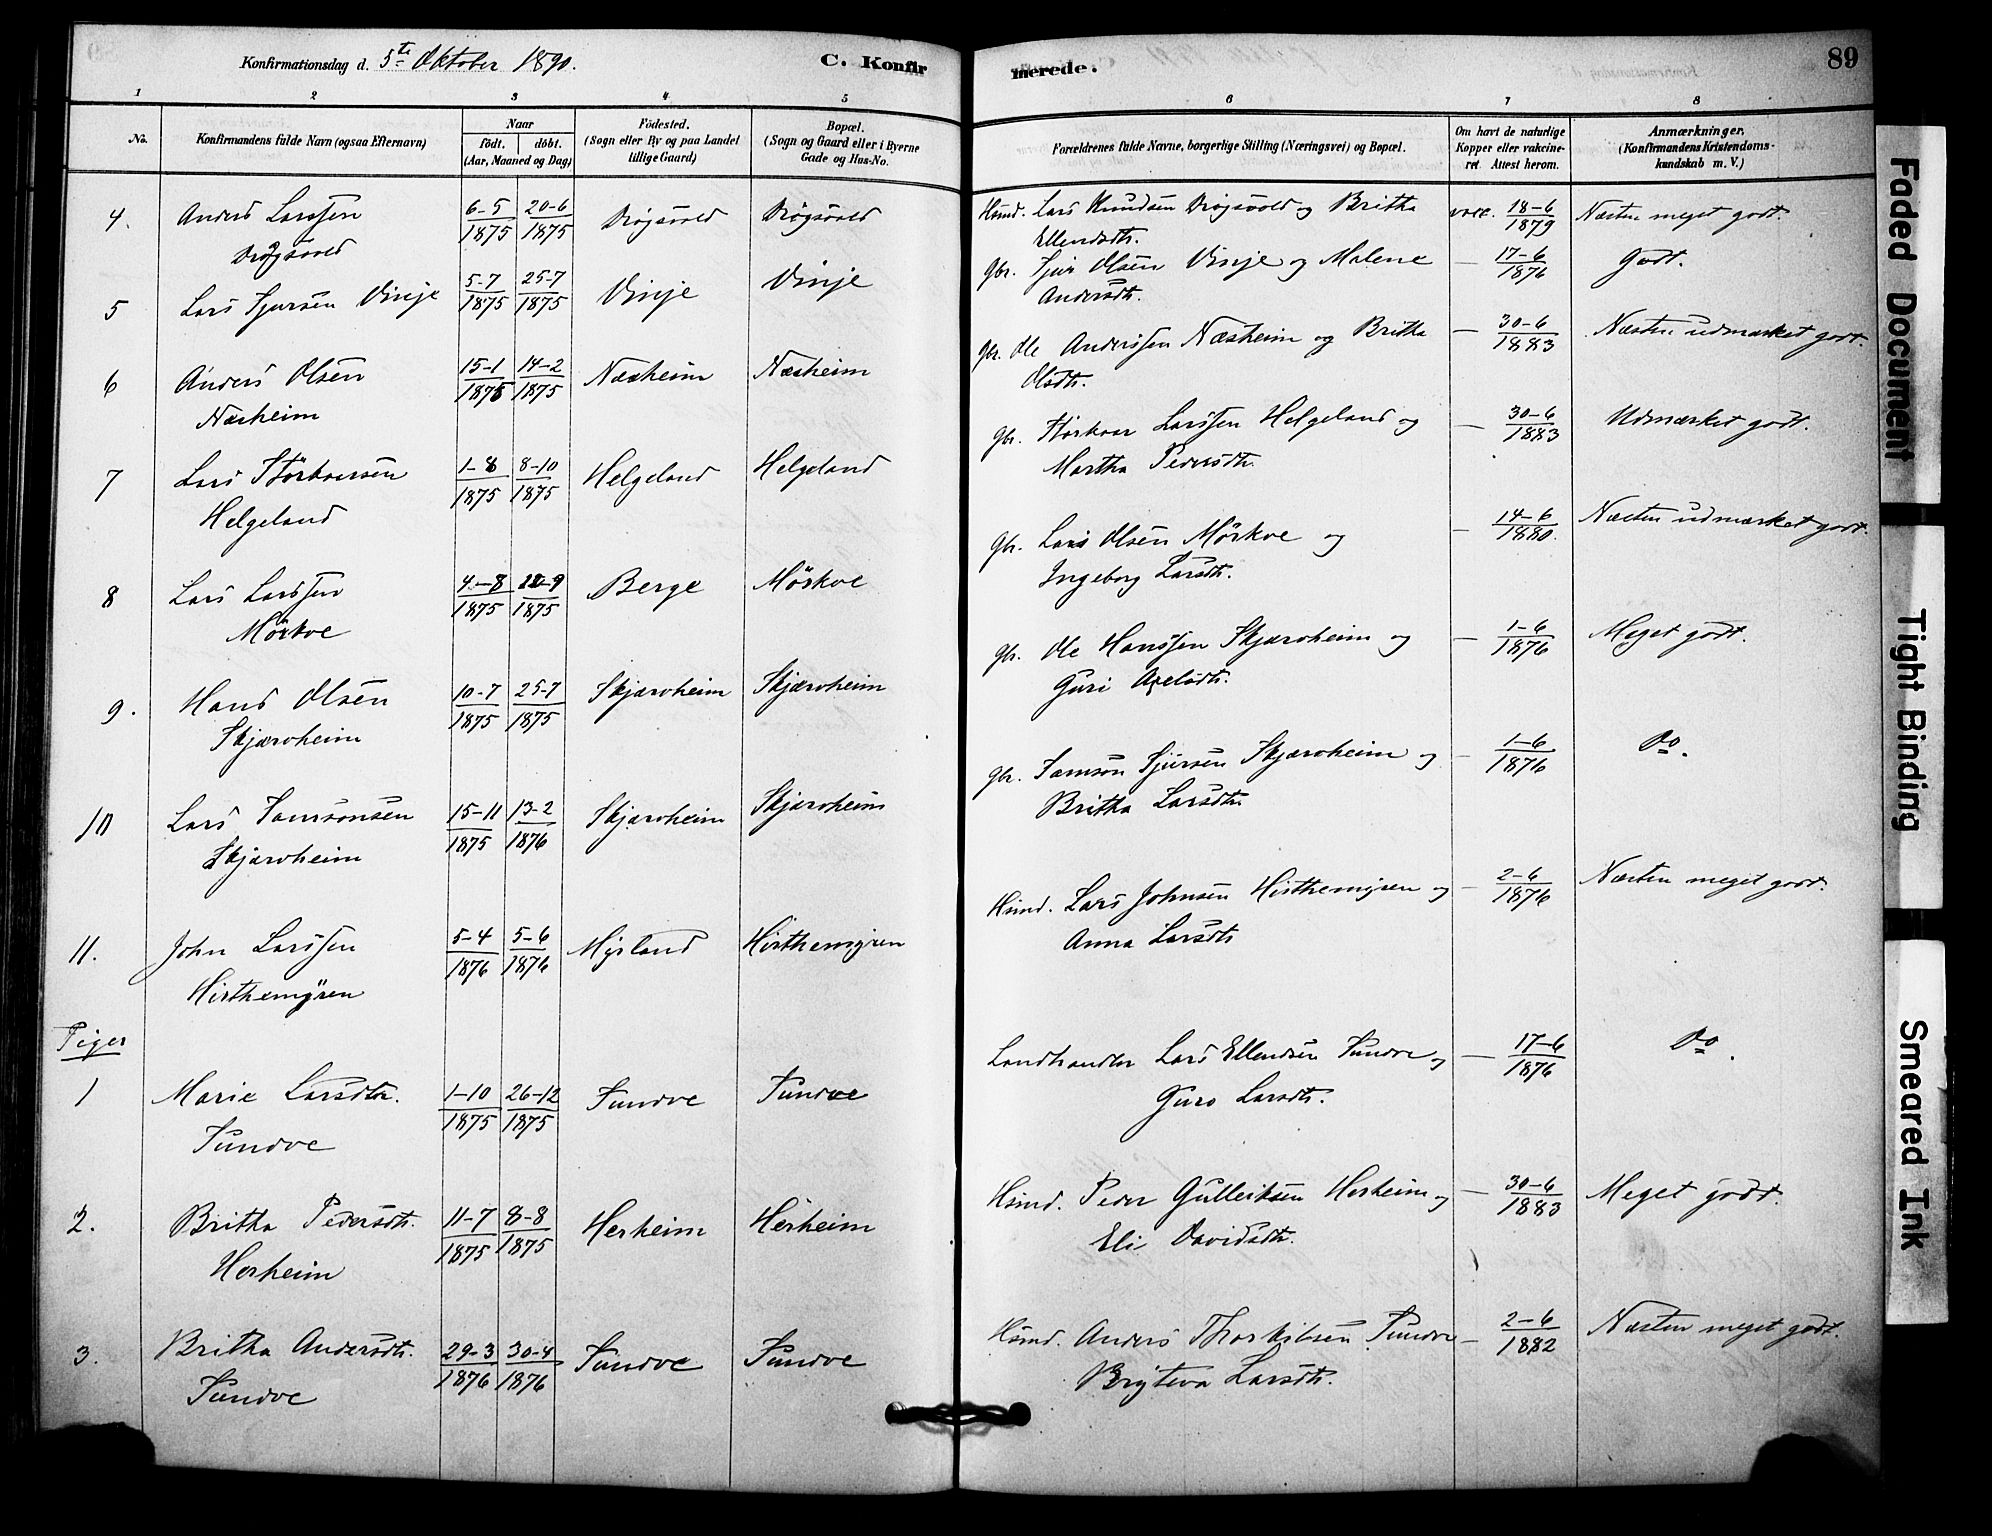 Konfirmationsdag d. 5te Oktober 1890.
C. Konfir
merede.
89
1
2
3
4
5
6
7
8
No.
Konfirmandens fulde Navn (ogsaa Efternavn)
Naar
födt. döbt.
(Aar, Maaned og Dag)
Födested.
(Sogn eller By og paa Landet
tillige Gaard)
Bopæl.
(Sogn og Gaard eller i Byerne
Gade og Hus-No.
Forældrenes fulde Navne, borgerlige Stilling (Næringsvei) og Bopæl.
Om havt de naturlige
Kopper eller vakcine-
ret. Attest herom.
Anmærkninger.
(Konfirmandens Kristendoms-
kundskab m. V.)
4. Anders Larssen 6-5 20-6 Drøgsvold Drøgsvold Husmd. Lars Knudsen Drøgsvold og Britha vacc. 18-6 Næsten meget godt.
Drøgsvold 1875 1875 Ellendsdtr. 1879
5 Lars Sjursen Vinje 5-7 25-7 Vinje Vinje gbr. Sjur Olsen Vinje og Malene — 17-6 Godt.
1875 1875 Andersdtr. 1876
6 Anders Olsen 15-1 14-2 Næsheim Næsheim gbr. Ole Anderssen Næsheim og Britha — 30-6 Næsten udmærket godt.
Næsheim 1875 1875 Olsdtr. 1883
7 Lars Störkorsen 1-8 8-10 Helgeland Helgeland gbr. Störkor Larssen Helgeland og — 30-6 Udmærket godt.
Helgeland 1875 1875 Martha Pedersdtr. 1883
8 Lars Larssen 4-8 -9 Berge Mörkve gbr. Lars Olsen Mörkve og — 14-6 Næsten udmærket godt.
Mörkve 1875 1875 Ingeborg Larsdtr. 1880.
9. Hans Olsen 10-7 25-7 Skjærvheim Skjærvheim gbr. Ole Hanssen Skjærvheim og — 1-6 Meget godt.
Skjærvheim 1875 1875 Guri Axelsdtr. 1876
10 Lars Samsonsen 15-11 13-2 Skjærvheim Skjærvheim gbr. Samson Sjursen Skjærvheim og — 1-6 Do.
Skjærvheim 1875 1876 Britha Larsdtr. 1876
11. John Larssen 5-4 5-6 Myrland Hirthemyren Husmd. Lars Johnsen Hirthemyren og — 2-6 Næsten meget godt.
Hirthemyren 1876 1876 Anna Larsdtr. 1876
Piger
1 Marie Larsdtr. 1-10 26-12 Sundve Sundve Landhandler Lars Ellendsen Sundve og — 17-6 Do.
Sundve 1875 1875 Guro Larsdtr. 1876
2. Britha Pedersdtr. 11-7 8-8 Herheim Herheim Husmd. Peder Gulleiksen Herheim og — 30-6 Meget godt.
Herheim 1875 1875 Eli Davidsdtr. 1883
3. Britha Andersdtr. 29-3 30-4 Sundve Sundve Husmd. Anders Thorkilsen Sundve — 2-6 Næsten meget godt.
Sundve 1876 1876 Bryteva Larsdtr. 1882
Faded Document
Tight Binding
Smeared Ink